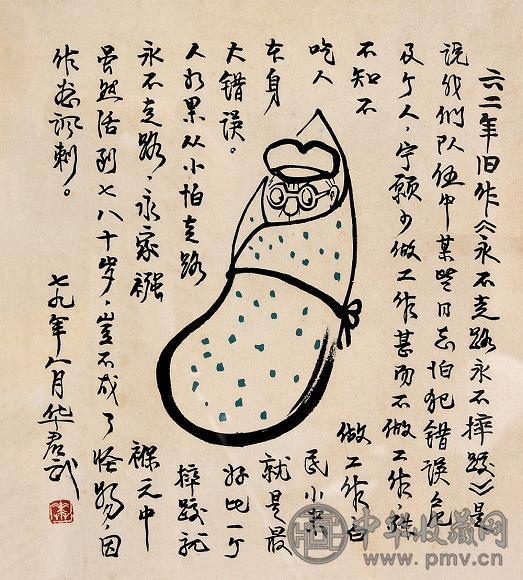 六二年旧作《永不走路永不摔跤》是
说我们队伍中某些同志怕犯错误危
及个人，宁愿少做工作甚而不做工作，殊
不知不做工作白
吃人民小米
本身就是最
大错误。好比一个
人如果从小怕走路摔跤就
永不走路，永襁褓之中
虽然活到七八十岁，岂不成了怪物，因
作讽刺。
七九年八月华君武
中华收藏网
www.pmv.cn